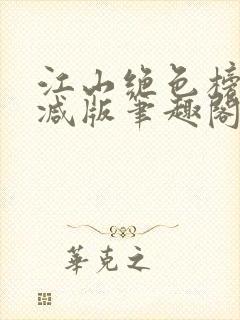 江山绝色榜
减版笔趣阁
華克之